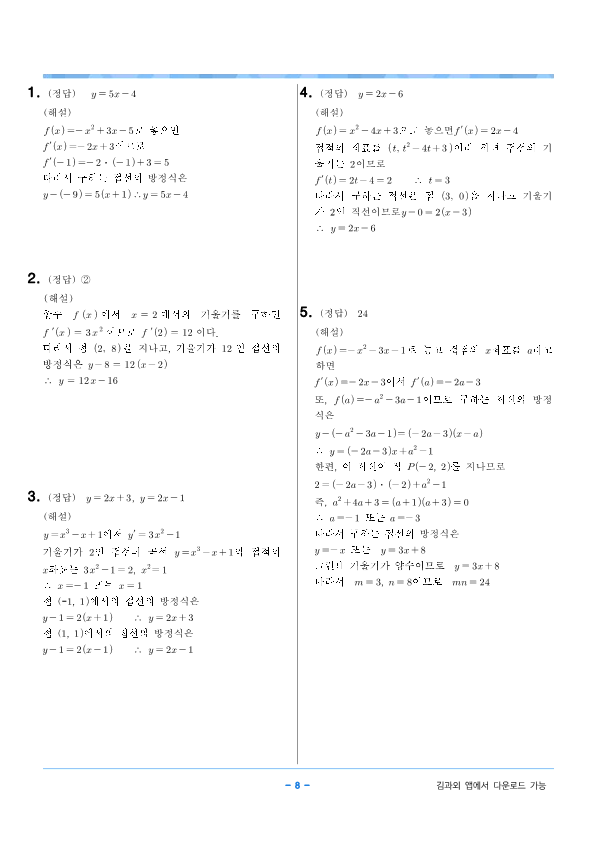 1. (정답) y=5x-4
(해설)
f(x)=-x²+3x-5로 놓으면
f′(x)=-2x+3이므로
f′(-1)=-2·(-1)+3=5
따라서 구하는 접선의 방정식은
y-(-9)=5(x+1)∴y=5x-4
2. (정답) ②
(해설)
함수 f(x)에서 x=2에서의 기울기를 구하면
f′(x)=3x²이므로 f′(2)=12이다.
따라서 점 (2, 8)을 지나고, 기울기가 12인 접선의
방정식은 y-8=12(x-2)
∴ y=12x-16
3. (정답) y=2x+3, y=2x-1
(해설)
y=x³-x+1에서 y′=3x²-1
기울기가 2인 접선과 곡선 y=x³-x+1의 접점의
x좌표는 3x²-1=2, x²=1
∴ x=-1 또는 x=1
점 (-1, 1)에서의 접선의 방정식은
y-1=2(x+1) ∴ y=2x+3
점 (1, 1)에서의 접선의 방정식은
y-1=2(x-1) ∴ y=2x-1
4. (정답) y=2x-6
(해설)
f(x)=x²-4x+3으로 놓으면f′(x)=2x-4
접점의 좌표를 (t, t²-4t+3)이라 하면 접선의 기
울기는 2이므로
f′(t)=2t-4=2 ∴ t=3
따라서 구하는 직선은 점 (3, 0)을 지나고 기울기
가 2인 직선이므로y-0=2(x-3)
∴ y=2x-6
5. (정답) 24
(해설)
f(x)=-x²-3x-1로 놓고 접점의 x좌표를 a라고
하면
f′(x)=-2x-3에서 f′(a)=-2a-3
또, f(a)=-a²-3a-1이므로 구하는 직선의 방정
식은
y-(-a²-3a-1)=(-2a-3)(x-a)
∴ y=(-2a-3)x+a²-1
한편, 이 직선이 점 P(-2, 2)를 지나므로
2=(-2a-3)·(-2)+a²-1
즉, a²+4a+3=(a+1)(a+3)=0
∴ a=-1 또는 a=-3
따라서 구하는 접선의 방정식은
y=-x 또는 y=3x+8
그런데 기울기가 양수이므로 y=3x+8
따라서 m=3, n=8이므로 mn=24
- 8 -
김과외 앱에서 다운로드 가능